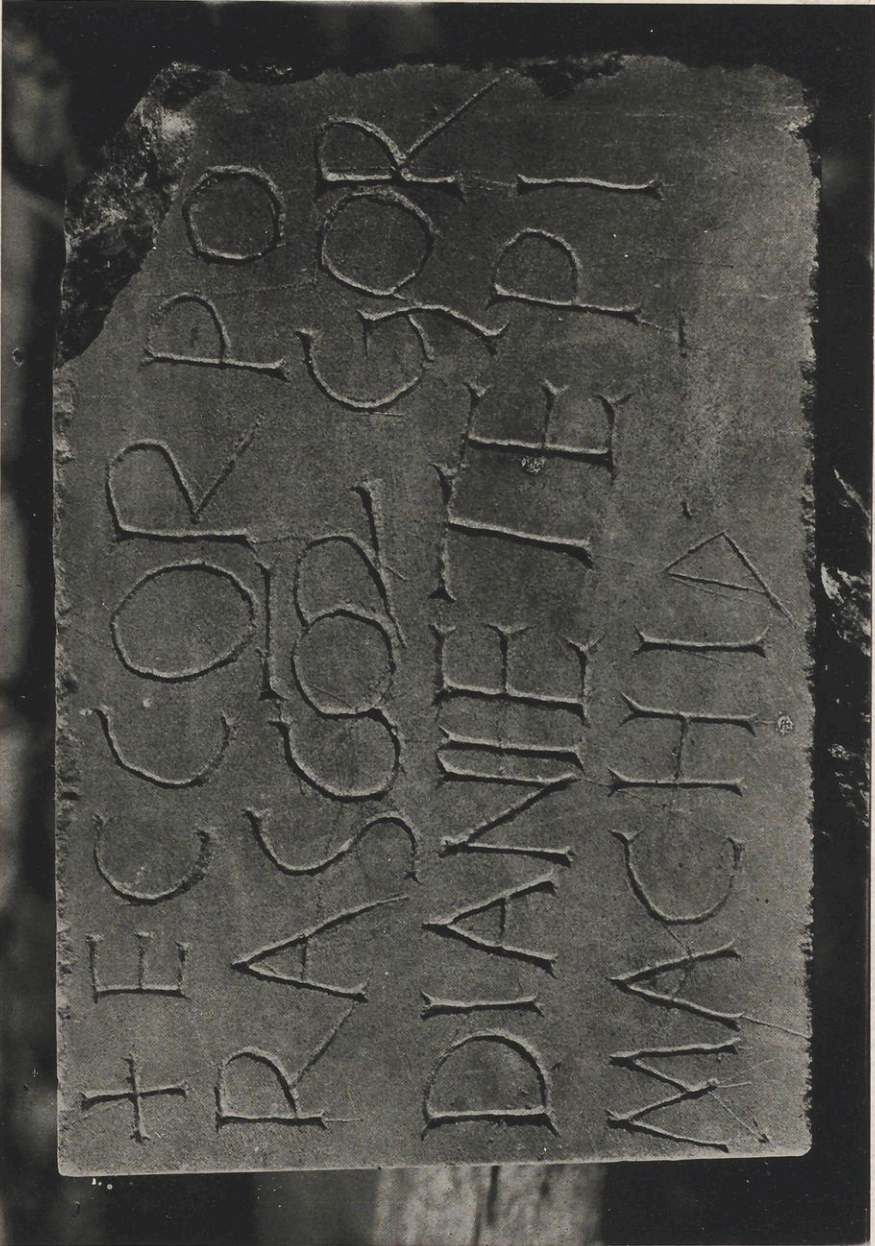 + EC CORPO
RA SCŌR GOR
DIANI ET EPI
MACHI